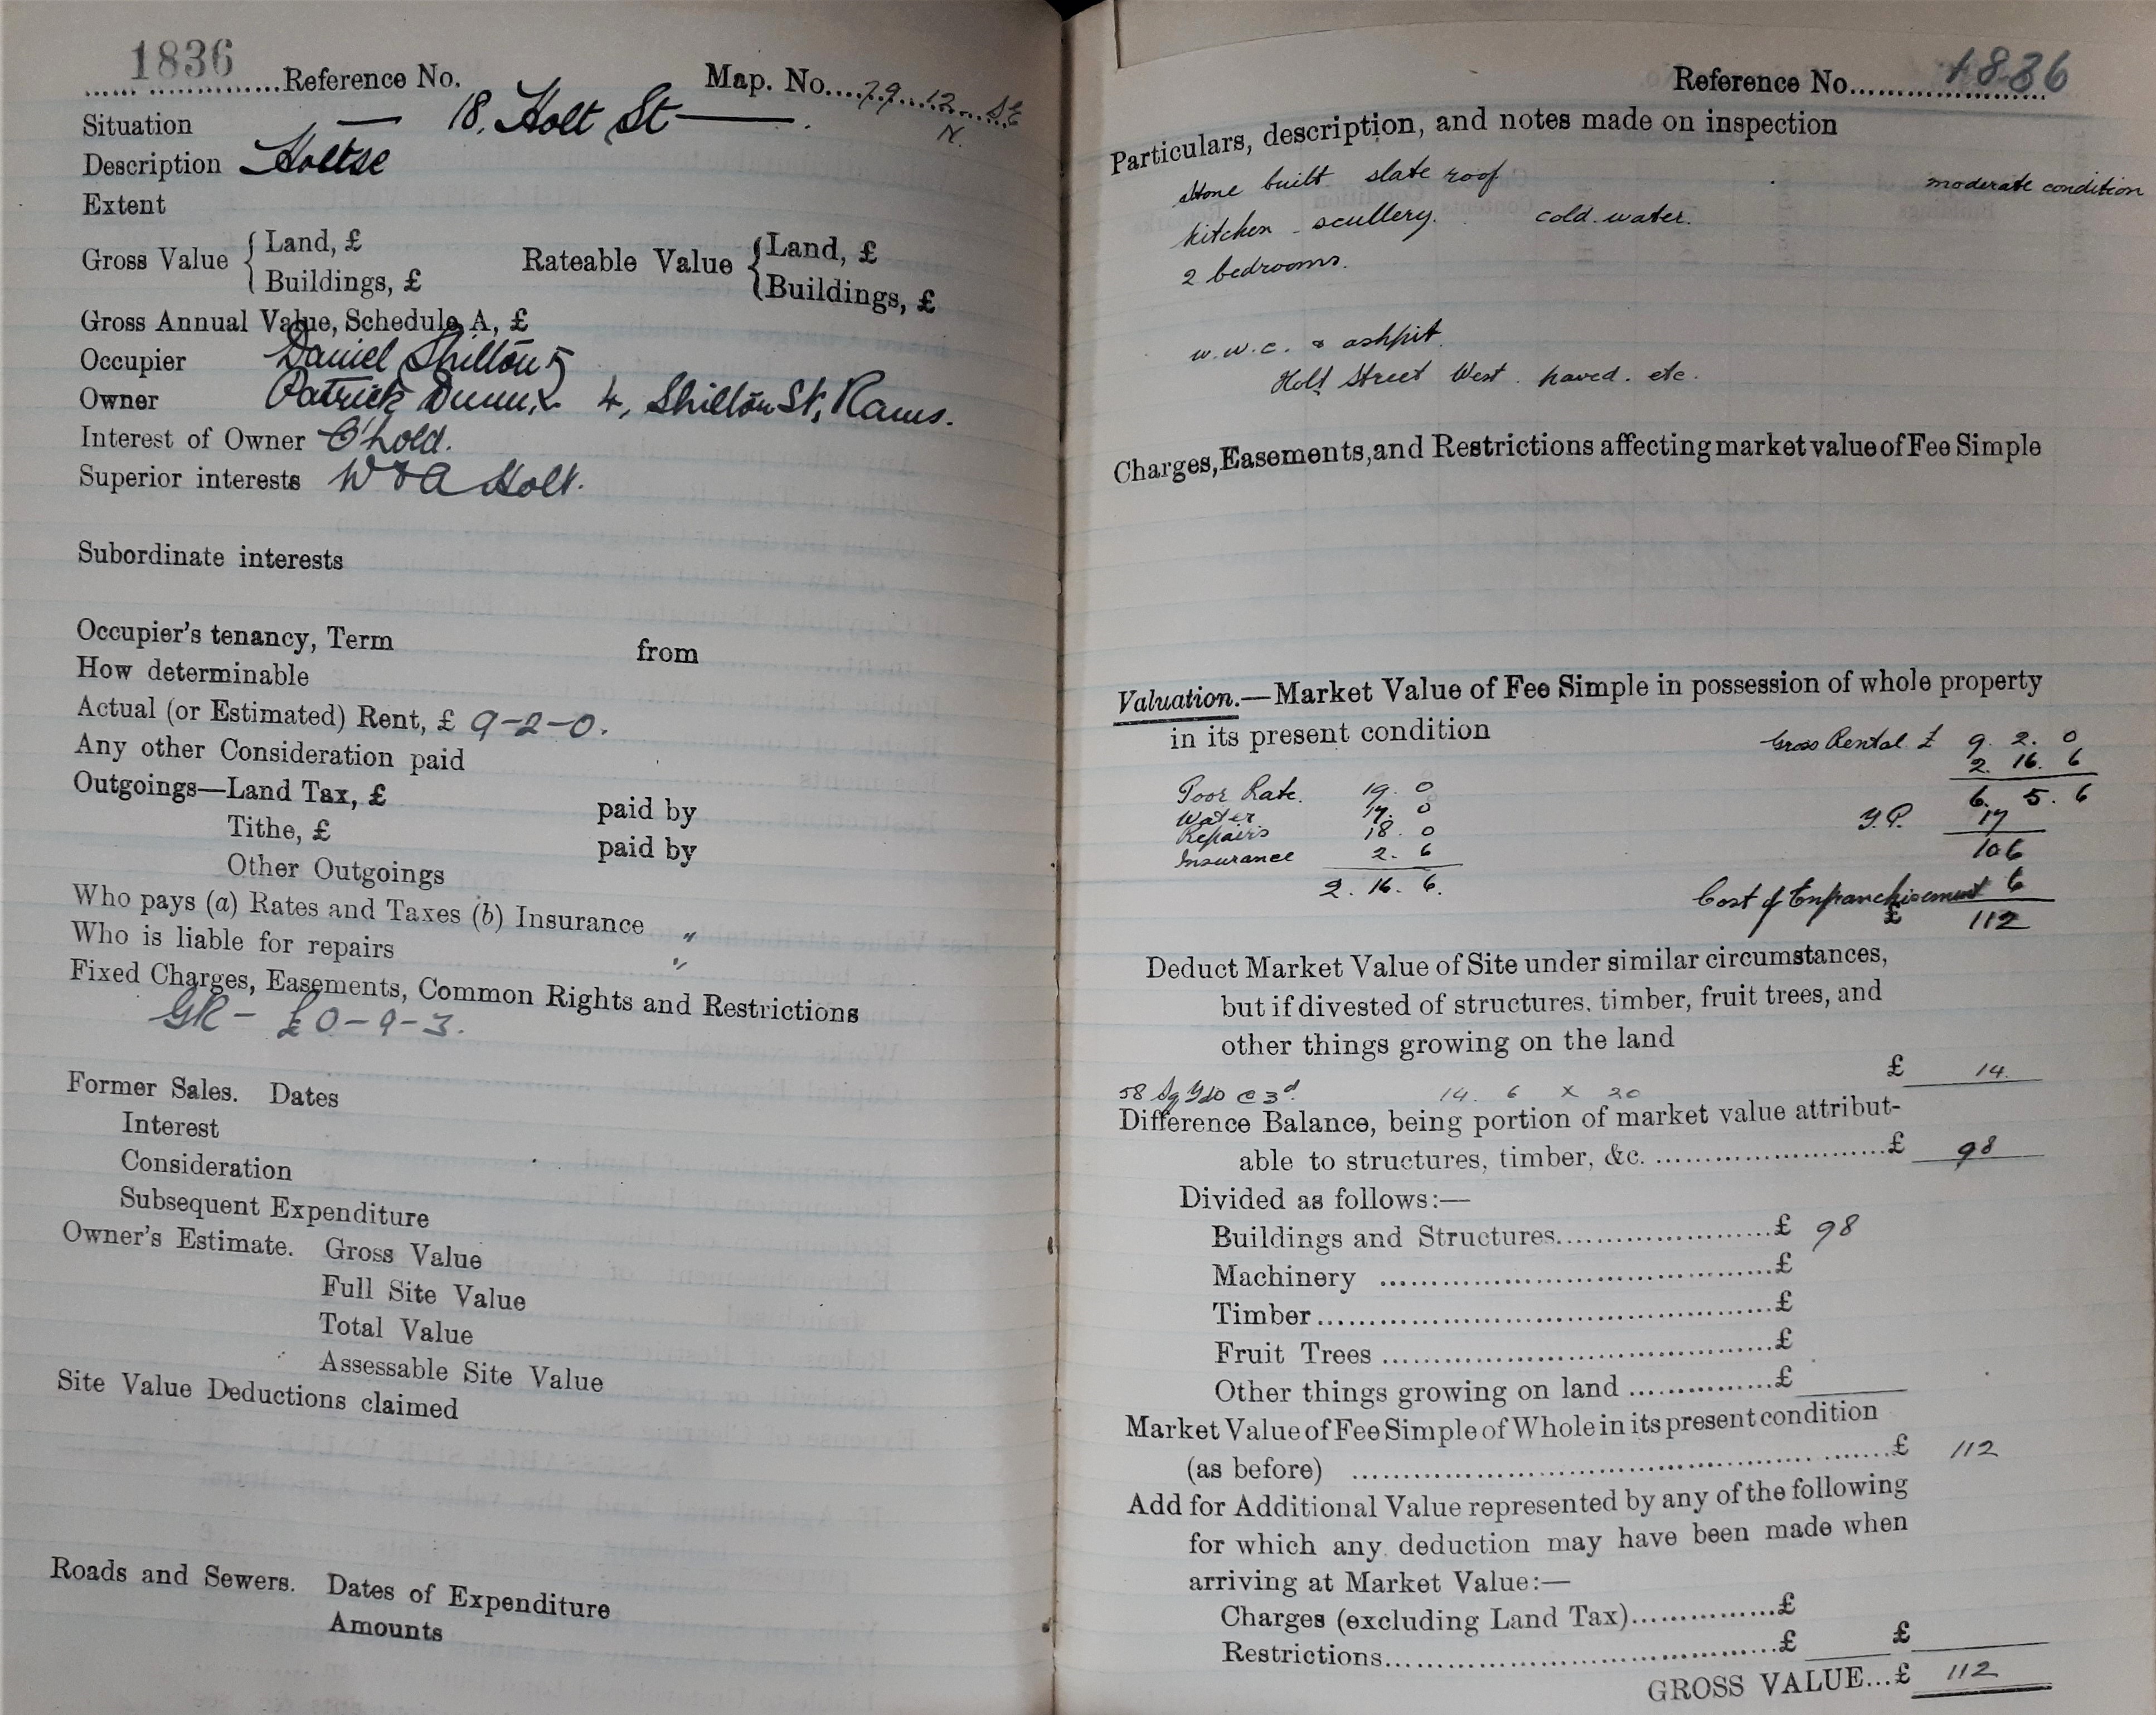 1836
Reference No. Map. No. 79. 12. SE
N.
Situation — 18, Holt St —
Description House
Extent
Gross Value { Land, £ Rateable Value { Land, £
Buildings, £ Buildings, £
Gross Annual Value, Schedule A, £
Occupier Daniel Shilton
Owner Patrick Dunn, 4, Shilton St, Rams.
Interest of Owner C'hold.
Superior interests W & A Holt.
Subordinate interests
Occupier's tenancy, Term from
How determinable
Actual (or Estimated) Rent, £ 9-2-0.
Any other Consideration paid
Outgoings—Land Tax, £ paid by
Tithe, £ paid by
Other Outgoings
Who pays (a) Rates and Taxes (b) Insurance "
Who is liable for repairs "
Fixed Charges, Easements, Common Rights and Restrictions
GR - £0-9-3.
Former Sales. Dates
Interest
Consideration
Subsequent Expenditure
Owner's Estimate. Gross Value
Full Site Value
Total Value
Assessable Site Value
Site Value Deductions claimed
Roads and Sewers. Dates of Expenditure
Amounts
Reference No. 1836
Particulars, description, and notes made on inspection
stone built slate roof moderate condition
kitchen - scullery. cold water.
2 bedrooms.
w.w.c. & ashpit.
Holt Street West. paved. etc.
Charges, Easements, and Restrictions affecting market value of Fee Simple
Valuation.—Market Value of Fee Simple in possession of whole property
in its present condition
Gross Rental £ 9. 2. 0
2. 16. 6
Poor Rate. 19. 0 6. 5. 6
Water 17. 0 Y.P. 17
Repairs 18. 0
Insurance 2. 6 106
2. 16. 6. Cost of Enfranchisement 6
£ 112
Deduct Market Value of Site under similar circumstances,
but if divested of structures, timber, fruit trees, and
other things growing on the land
£ 14.
58 Sq Yds @ 3d. 14. 6 x 20
Difference Balance, being portion of market value attribut-
able to structures, timber, &c. £ 98
Divided as follows:—
Buildings and Structures £ 98
Machinery £
Timber £
Fruit Trees £
Other things growing on land £
Market Value of Fee Simple of Whole in its present condition
(as before) £ 112
Add for Additional Value represented by any of the following
for which any deduction may have been made when
arriving at Market Value:—
Charges (excluding Land Tax) £
Restrictions £ £
GROSS VALUE...£ 112